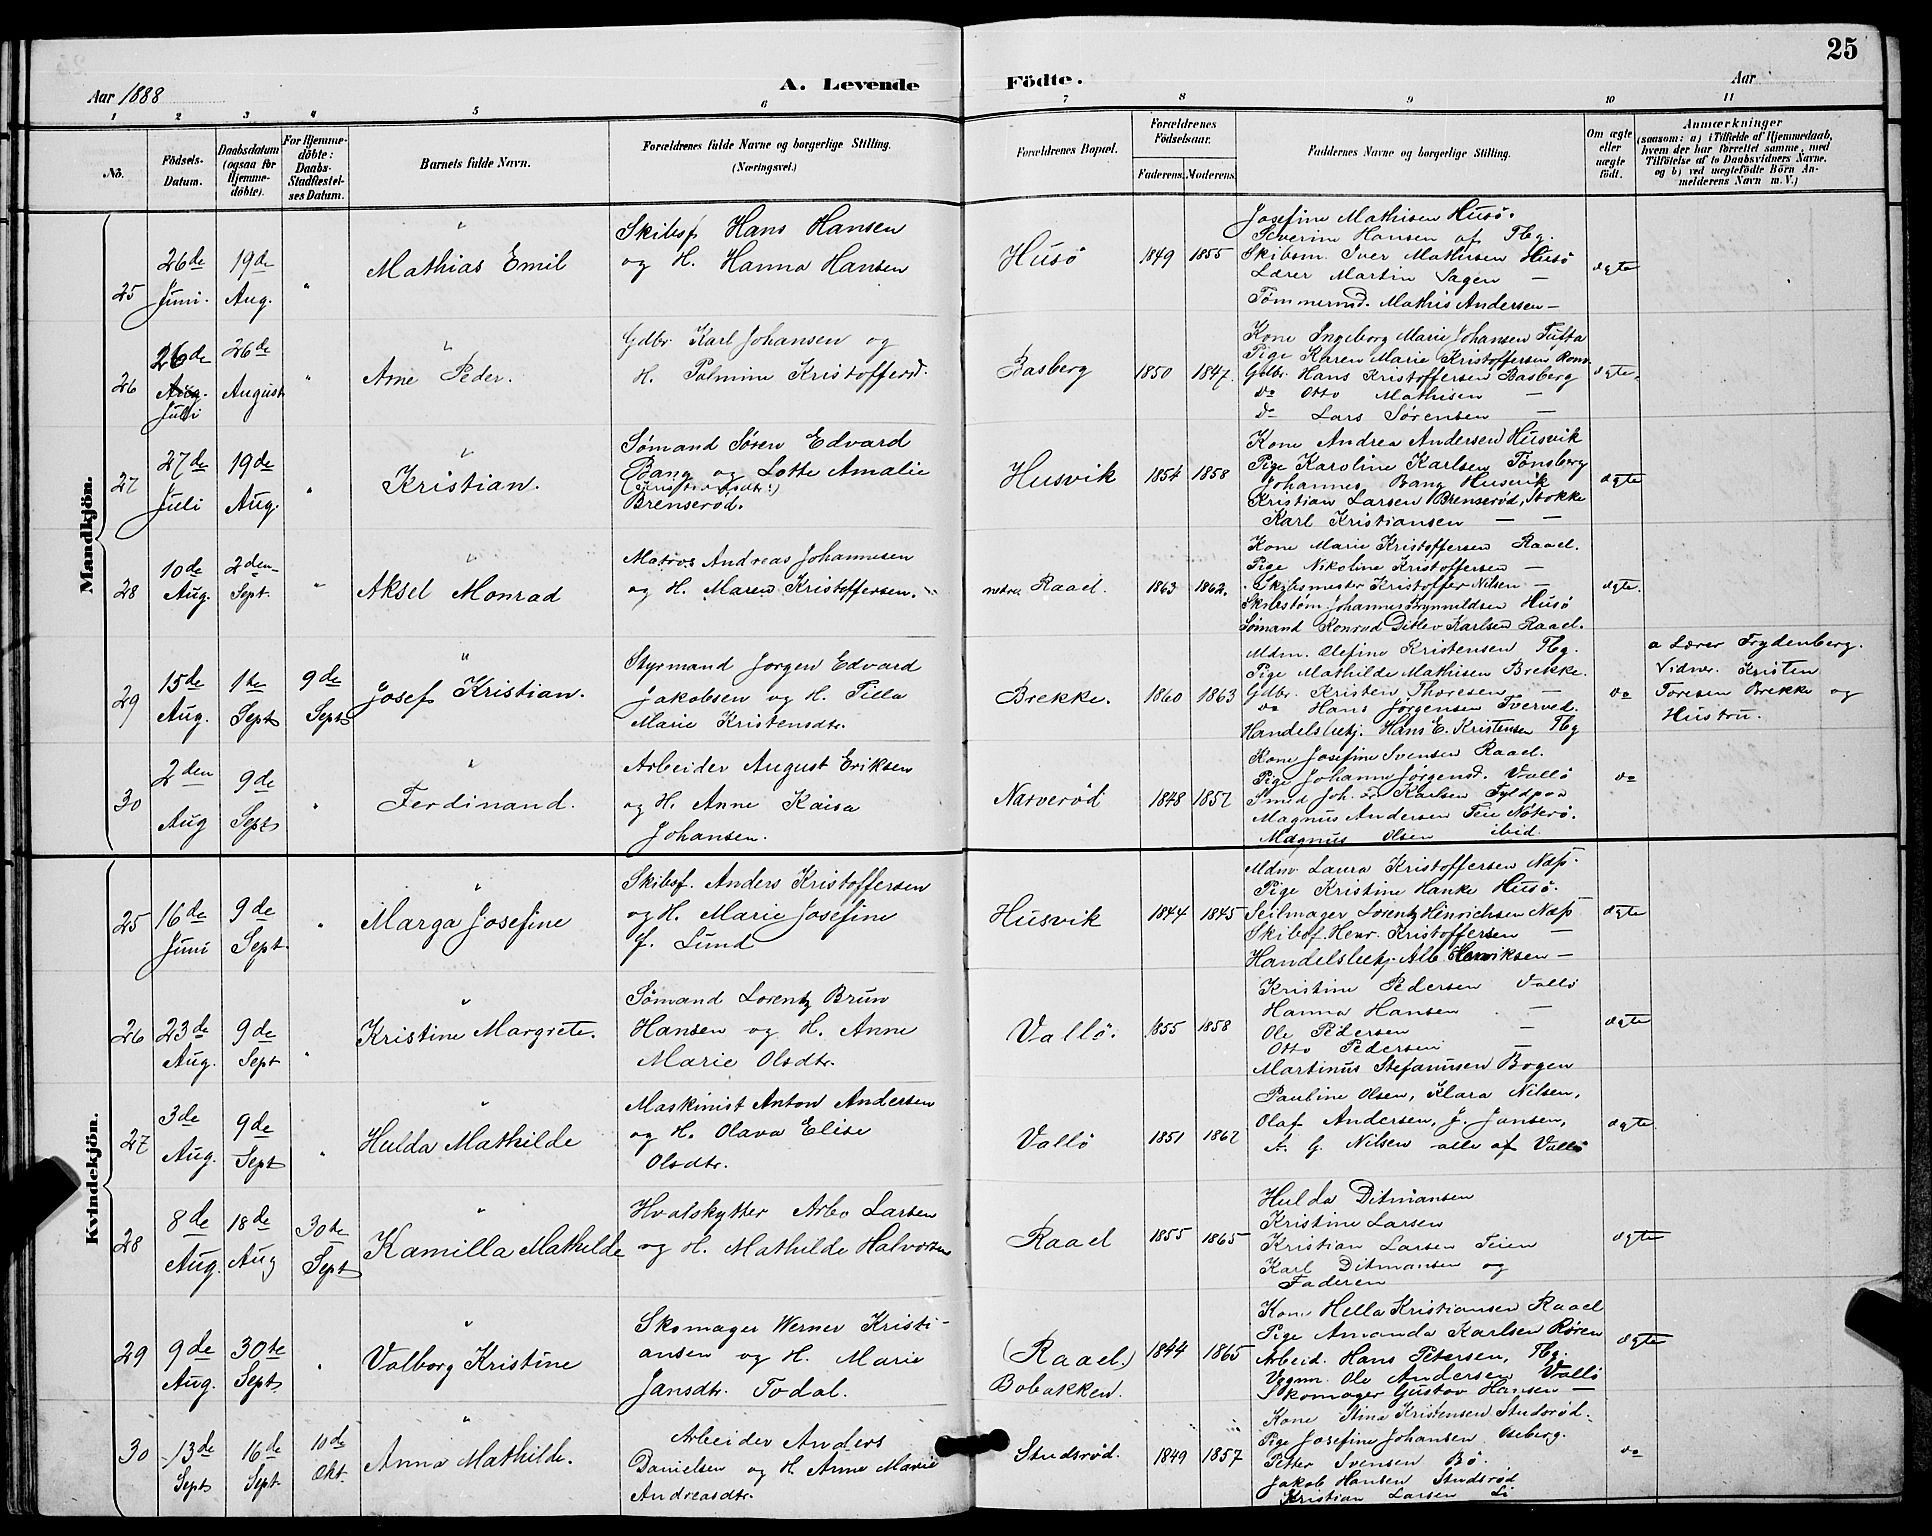 25
Aar 1888
A. Levende
Födte.
Aar
1 2 3 4 5 6 7 8 9 10 11
No.
Födsels-Datum.
Daabsdatum (ogsaa for Hjemme-döbte).
For Hjemme-döbte: Daabs-Stadfæstel-ses Datum.
Barnets fulde Navn.
Forældrenes fulde Navne og borgerlige Stilling.
(Næringsvei.)
Forældrenes Bopæl.
Forældrenes Födselsaar.
Faderens. Moderens.
Faddernes Navne og borgerlige Stilling.
Om ægte eller uægte födt.
Anmærkninger
(saasom: a) i Tilfælde af Hjemmedaab,
hvem der har forrettet samme, med
Tilföielse af to Daabsvidners Navne.
og b) ved uægtefödte Börn An-
melderens Navn m. V.)
Mandkjön.
25
26de Juni.
19de Aug.
"
Mathias Emil
Skibsf Hans Hansen
og H. Hanna Hansen
Husö
1849 1855
Josefine Mathisen Husö.
Severine Hansen af Tbg.
Skibsm. Iver Mathisen Husö
Lærer Martin Sagen —
Tömmermd. Mathis Andersen —
ægte
26
26de Aug. Juli
26de August
"
Arne Peder.
Gdbr. Karl Johansen og
H. Palmine Kristoffersd.
Basberg
1850 1847.
Kone Ingeborg Marie Johansen Tufta
Pige Karen Marie Kristoffersen Rom
Gdbr. Hans Kristoffersen Basberg
do Otto Mathisen —
do Lars Sørensen —
ægte.
27
27de Juli
19de Aug.
"
Kristian.
Sømand Søren Edvard
Bang og Lotte Amalie
Brenserød.
Husvik
1854 1858
Kone Andrea Andersen Husvik
Pige Karoline Karlsen Tønsberg
Johannes Bang Husvik
Kristian Larsen Brenserød, Stokke
Karl Kristiansen — —
ægte
28
10de Aug.
2den Sept.
"
Aksel Monrad
Matros Andreas Johannesen
og H. Maren Kristoffersen.
Raael.
1863 1862.
Kone Marie Kristoffersen Raael.
Pige Nikoline Kristoffersen —
Skibsmester Kristoffer Nilsen —
Skibstøm. Johannes Brynnildsen Husö
Sømand Konrad Ditlev Karlsen Raael.
ægte.
29
15de Aug.
1te Sept
9de Sept
Josef Kristian.
Styrmand Jørgen Edvard
Jakobsen og H. Tilla
Marie Kristensdtr.
Brekke.
1860 1863
Mdm. Olefine Kristensen Tbg.
Pige Mathilde Mathisen Brekke.
Gdbr. Kristen Thoresen —
do Hans Jørgensen Tverved.
Handelsbetj. Hans E. Kristensen Tbg
do
a Lærer Frydenberg.
Vidner. Kristen
Toresen Brekke og
Hustru.
30
2den Aug
9de Sept
"
Ferdinand.
Arbeider August Eriksen
og H. Anne Kaisa
Johansen.
Narverød
1848 1852
Kone Josefine Svensen Raael.
Pige Johanne Jørgensd. Vallö
Smed Joh. Fr. Karlsen Fyldpaa
Magnus Andersen Teie Nøterö.
Magnus Olsen ibid.
do
Kvindekjön.
25
16de Juni
9de Sept.
"
Marga Josefine
Skibsf. Anders Kristoffersen
og H. Marie Josefine
f. Lund
Husvik
1844 1845
Mdm. Laura Kristoffersen Næs.
Pige Kristine Hanke Husö.
Seilmager Lorentz Hinrichsen Næs
Skibsf. Henr. Kristoffersen —
Handelsbetj. Alb. Henriksen —
ægte
26
23de Aug.
9de Sept
"
Kristine Margrete.
Sømand Lorentz Brun
Hansen og H. Anne
Marie Olsdtr.
Vallö.
1855 1858
Kristine Pedersen Vallö
Hanna Hansen —
Ole Pedersen —
Otto Pedersen —
Martinus Stefanusen Bogen
ægte
27
3de Aug.
9de Sept
"
Hulda Mathilde
Maskinist Anton Andersen
og H. Olava Elise
Olsdtr.
Vallö
1851 1862
Pauline Olsen, Klara Nilsen,
Olaf Andersen, J. Jansen,
A. G. Nilsen alle af Vallö
ægte
28
8de Aug.
18de Aug
30te Sept
Kamilla Mathilde
Hvalskytter Arbo Larsen
og H. Mathilde Halvorsen
Raael
1855 1865
Hulda Ditmansen
Kristine Larsen
Kristian Larsen Teien
Karl Ditmansen og
Faderen
ægte
29
9de Aug.
30te Sept.
"
Valborg Kristine
Skomager Werner Kristi-
ansen og H. Marie
Jansdtr. Todal.
(Raael.)
Bobakken.
1844 1865
Kone Hella Kristiansen Raael
Pige Amanda Karlsen Røren
Arbeid. Hans Petersen, Tbg.
Vognm. Ole Andersen Vallö
Skomager Gustav Hansen —
ægte
30
13de Sept
16de Sept.
10de Okt.
Anna Mathilde.
Arbeider Anders
Danielsen og H. Anne Marie
Andreasdtr.
Studsrød.
1849 1857
Kone Stina Kristensen Studsrød.
Pige Josefine Johansen Oseberg.
Petter Svensen Bö.
Jakob Hansen Studsrød
Kristian Larsen Li
do